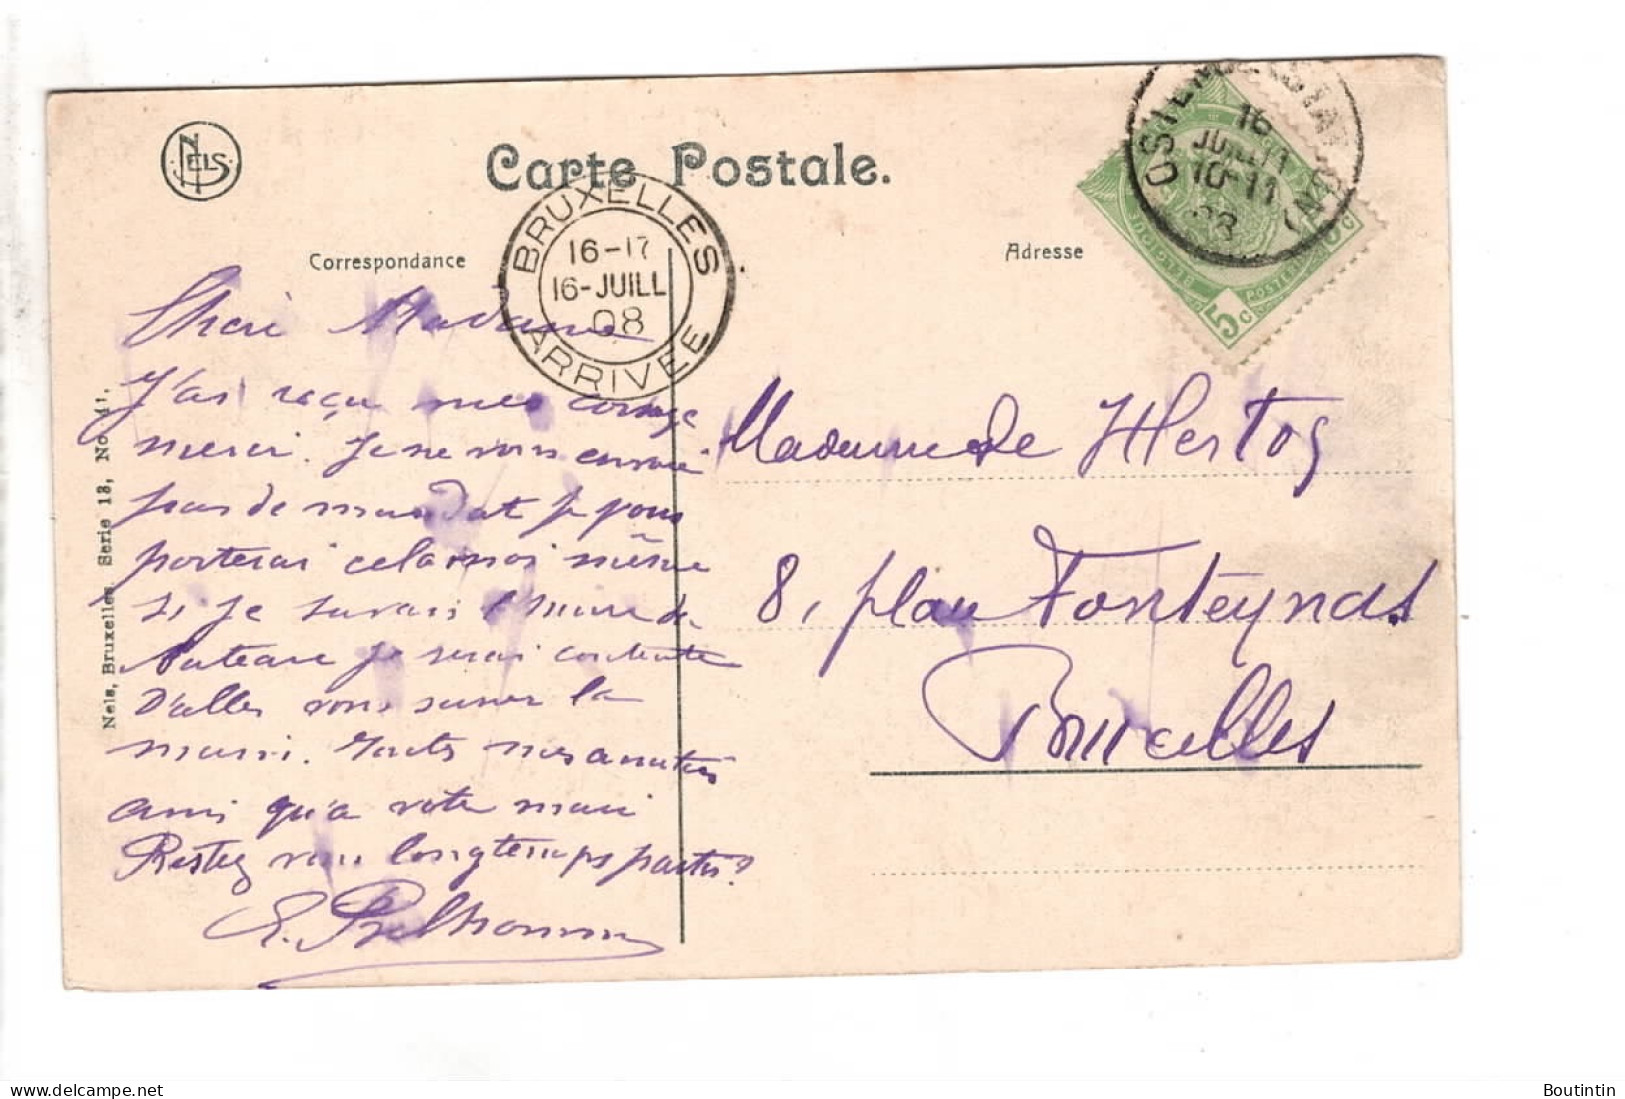 NELS
Carte Postale.
Correspondance
Adresse
BRUXELLES
16-17
16-JUILL
08
ARRIVEE
16
10-11
5c
POSTERIJ
Nels, Bruxelles, Serie 13, No
Chère Madame
J'ai reçu mes corsage
merci. Je ne vous envoie
pas de mandat je vous
porterai cela moi même
si je savais l'heure du
bateau je serai contente
d'aller vous serrer la
main. Toutes nos amitiés
ainsi qu'a votre mari
Restez vous longtemps partis?
Madame de Hertog
8, place Fonteynas
Bruxelles
Boutintin